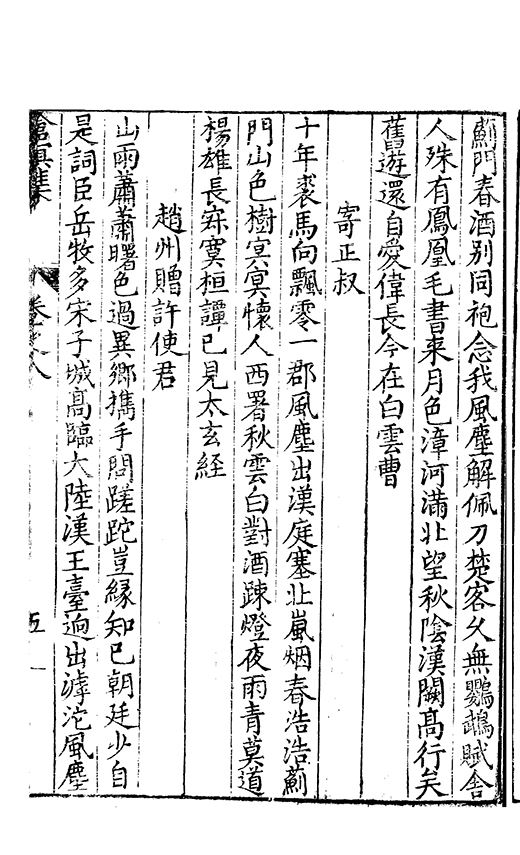 薊門春酒别同袍念我風塵解佩刀楚客久無鸚鵡賦舎
人殊有鳳凰毛書来月色漳河滿北望秋陰漢闕高行矣
舊遊還自愛偉長今在白雲曹
寄正叔
十年裘馬向飄零一郡風塵出漢庭塞北嵐烟春浩浩薊
門山色樹冥冥懷人西署秋雲白對酒踈燈夜雨青莫道
楊雄長寂寞桓譚已見太玄経
趙州贈許使君
山雨蕭蕭曙色過異鄉携手問蹉跎豈縁知已朝廷少自
是詞臣岳牧多宋子城髙臨大陸漢王臺逈出滹沱風塵
滄溟集
卷之八
五